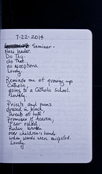 7-22-2014
Seminar -
New leader.
Do this -
do that.
no exceptions.
Lovely.
Reminds me of growing up
Catholic,
going to a Catholic School.
Lovely.
Priests and nuns
dressed in black.
Threat of hell.
Promises of heaven,
Fear ruled.
Ruler, words
over children's hands
while words were misspelled.
Lovely.